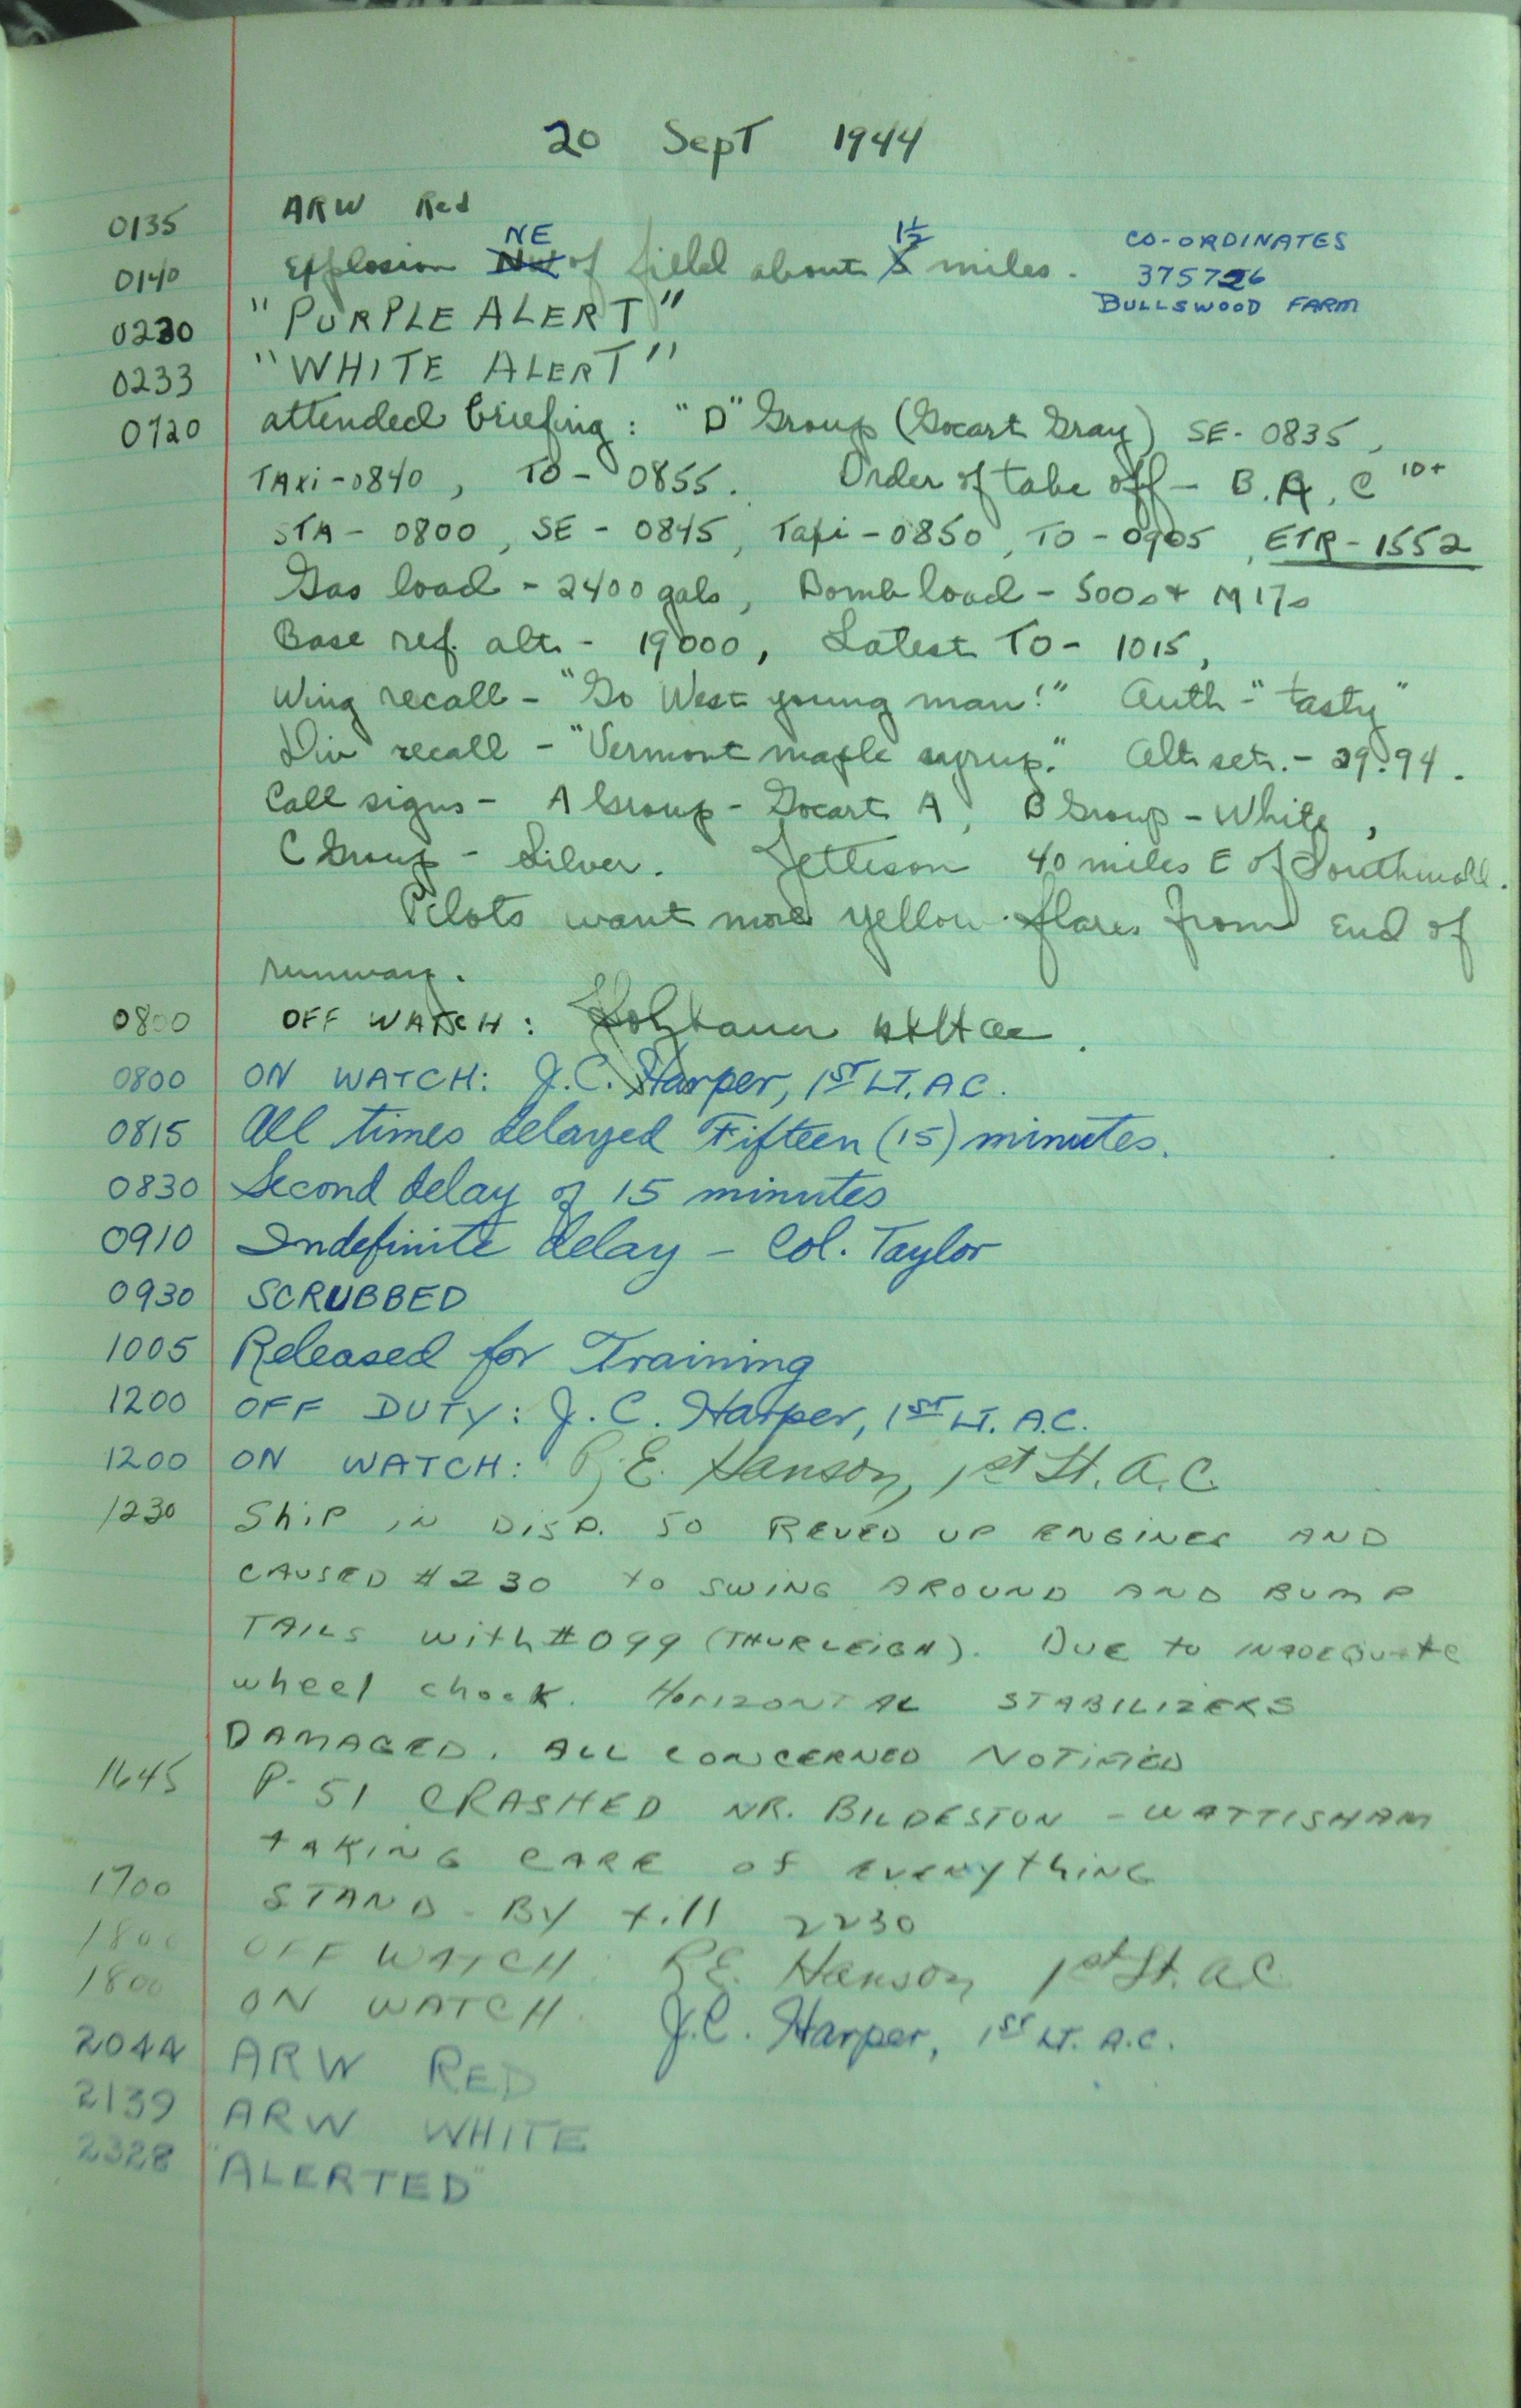 20 Sept 1944
0135 ARW Red
0140 Explosion NE of field about 1½ miles.
CO-ORDINATES
375726
BULLSWOOD FARM
0230 "PURPLE ALERT"
0233 "WHITE ALERT"
0720 attended briefing: "D" Group (Gocart Gray) SE- 0835,
TAXi-0840, TO- 0855. Order of take off- B. A, C
STA- 0800, SE- 0845, Taxi-0850, TO-0905, ETR-1552
Gas load - 2400 gals, Bomb load - 500s + M17s
Base ref. alt. - 19000, Latest TO- 1015,
Wing recall - "Go West young man!" Auth-"tasty"
Div recall - "Vermont maple syrup." Alt. set. - 29.94.
Call signs - A Group - Gocart A, B Group - White,
C Group - Silver. Jettison 40 miles E of Southwold.
Pilots want more yellow flares from End of
runway.
0800 OFF WATCH:
0800 ON WATCH: J.C. Harper, 1ST LT. AC.
0815 All times delayed Fifteen (15) minutes.
0830 Second delay of 15 minutes
0910 Indefinite delay - Col. Taylor
0930 SCRUBBED
1005 Released for Training
1200 OFF DUTY: J. C. Harper, 1ST LT. A.C.
1200 ON WATCH: R.E. Hanson, 1st Lt. A.C.
1230 Ship in DISP. 50 REVED UP ENGINES AND
CAUSED #230 to SWING AROUND AND BUMP
TAILS with #099 (THURLEIGH). DUE to INADEQUATE
wheel chock. HORIZONTAL STABILIZERS
DAMAGED. ALL CONCERNED NOTIFIED
1645 P-51 CRASHED NR. BILDESTON - WATTISHAM
TAKING CARE of EVERYTHING
1700 STAND-BY till 2230
1800 OFF WATCH. R.E. Hanson 1st Lt. A.C.
1800 ON WATCH. J.C. Harper, 1ST LT. A.C.
2044 ARW RED
2139 ARW WHITE
2328 "ALERTED"